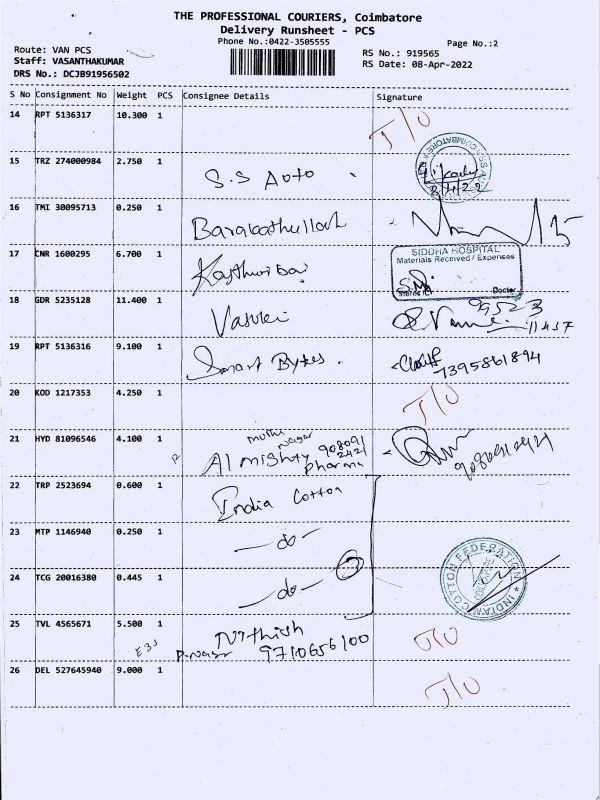 THE PROFESSIONAL COURIERS, Coimbatore
Delivery Runsheet - PCS
Phone No.:0422-3505555
Page No.:2
Route: VAN PCS
Staff: VASANTHAKUMAR
DRS No.: DCJB91956502
RS No.: 919565
RS Date: 08-Apr-2022
S No Consignment No Weight PCS Consignee Details Signature
14 RPT 5136317 10.300 1 T/O
15 TRZ 274000984 2.750 1 S.S Auto
8/4/22
16 TMI 30095713 0.250 1 Barakathullah
17 CNR 1600295 6.700 1 Kasthuri Bai
SIDDHA HOSPITAL
Materials Received / Expenses
Stores I/C Doctor
18 GDR 5235128 11.400 1 Vasuki
99523
11437
19 RPT 5136316 9.100 1 Smart Bytes.
7395861894
20 KOD 1217353 4.250 1 T/O
21 HYD 81096546 4.100 1 Almighty Pharma
muthu nagar
909091
2421
9090912421
22 TRP 2523694 0.600 1 India Cotton
23 MTP 1146940 0.250 1 -do-
24 TCG 20016380 0.445 1 -do- 3
INDIAN COTTON FEDERATION
25 TVL 4565671 5.500 1 Nithish T/O
P-Nagar 9710656100
26 DEL 527645940 9.000 1 T/O